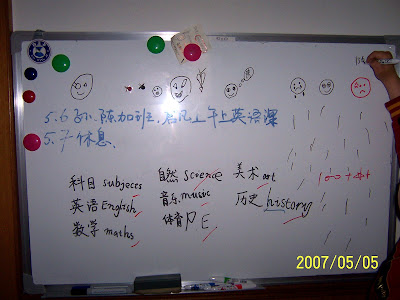 5.6 孙.陈加班.君凡上午上英语课
5.7 休息.
科目 subjects 自然 science 美术 art
英语 English 音乐 music 历史 history
数学 maths 体育 P.E
100+
2007/05/05